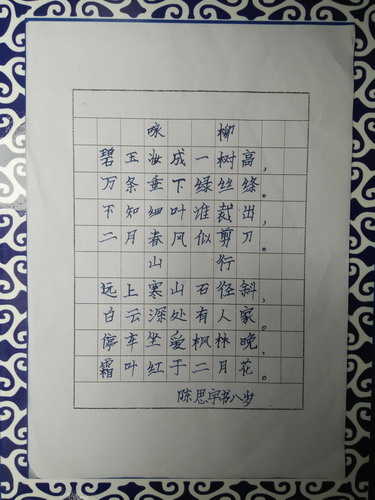 咏柳
碧玉妆成一树高，
万条垂下绿丝绦。
不知细叶谁裁出，
二月春风似剪刀。
山行
远上寒山石径斜，
白云深处有人家。
停车坐爱枫林晚，
霜叶红于二月花。
陈思宇书八岁